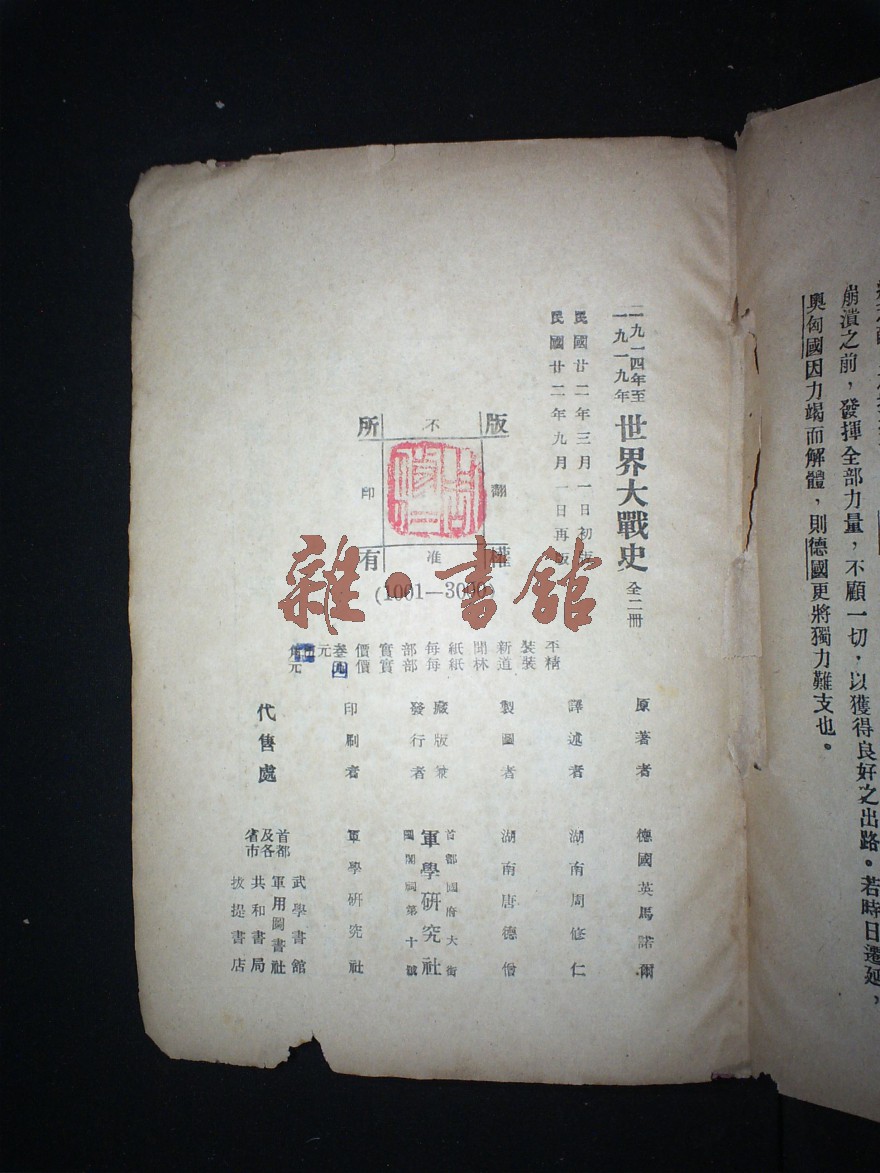 崩潰之前，發揮全部力量，不顧一切，以獲得良好之出路。若時日遷延，
奧匈國因力竭而解體，則德國更將獨力難支也。
一九一四年至
一九一九年
世界大戰史 全二冊
民國廿二年三月一日初版
民國廿二年九月一日再版
版權所有
不准翻印
(1001—3000)
平裝新聞紙每部實價
精裝道林紙每部實價
原著者 德國英馬諾爾
譯述者 湖南周修仁
製圖者 湖南唐德偕
廠版兼
發行者
首都國府大街
軍學研究社
印刷者 軍學研究社
代售處
首都
及各
省市
武學書館
軍用圖書社
共和書局
拔提書店
雜·書館